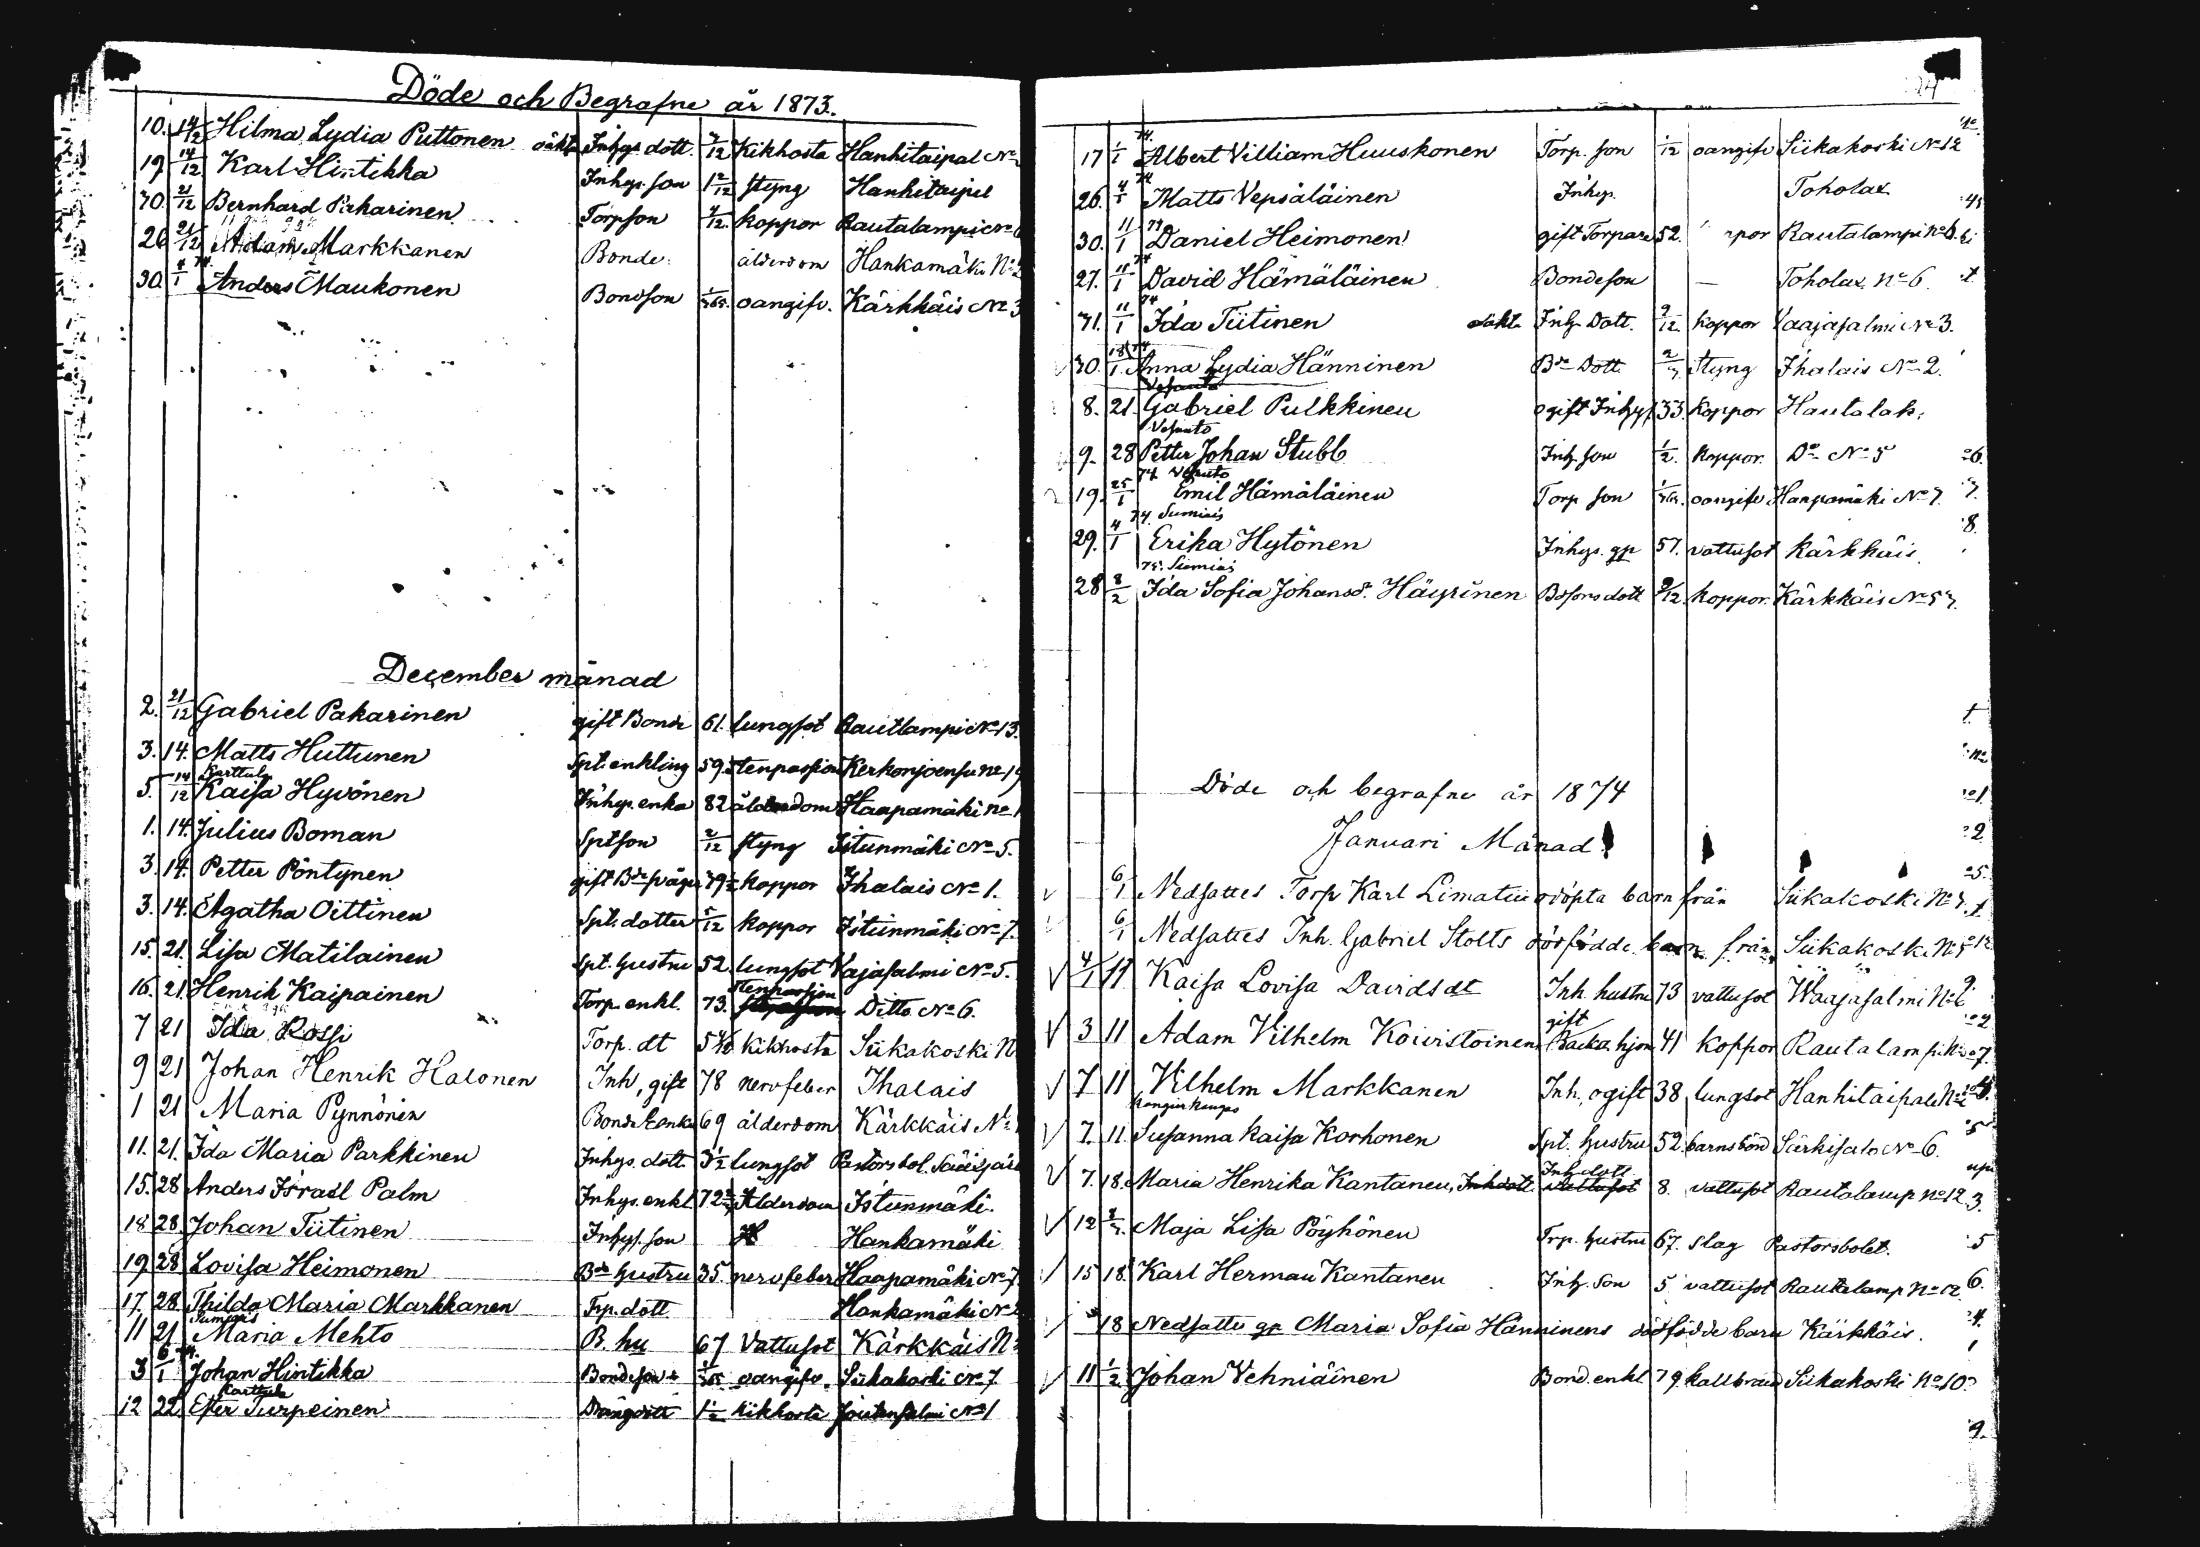 Döde och Begrafne år 1873.
10. 14/12 Hilma Lydia Puttonen oäkta Inhys dott. 7/12 Kikhosta Hanhitaipal No
19 14/12 Karl Hintikka Inhys. son 1 2/12 styng Hanhitaipal
30. 21/12 Bernhard Pakarinen Torpson 4/12. koppor Rautalampi No 6
26 21/12 Adam Markkanen Bonde ålderdom Hankamäki No 2
30. 4/1 74. Anders Maukonen Bondson 1/365. oangifv. Kärkkäis No 3
December månad
2. 21/12 Gabriel Pakarinen gift Bonde 61. lungsot Rautlampi No 13.
3. 14. Matts Huttunen Spt. enkling 59. stenpassion Kerkonjoensu No 19
Karttula
5. 14/12 Kaisa Hyvönen Inhys. enka 82 ålderdom Haapamäki No 1
1. 14. Julius Boman Sptson 2/12 styng Istunmäki No 5.
3. 14. Petter Pöntynen gift Bde måg 79 1/2 koppor Ihalais No 1.
3. 14. Agatha Oittinen Spt. dotter 5/12 koppor Istuinmäki No 7.
15. 21. Lisa Matilainen Spt. hustru 52. lungsot Vajasalmi No 5.
stenpassion
16. 21. Henrik Kaipainen Torp. enkl. 73. Ditto No 6.
7 21 Ida Rossi Torp. dt 5 1/2 kikhosta Siikakoski N
9 21 Johan Henrik Halonen Inh, gift 78 nervfeber Ihalais
1 21 Maria Pynnönen Bonde Enka 69 ålderdom Kärkkäis No
11. 21. Ida Maria Parkkinen Inhys. dott. 3 1/2 lungsot Pastorsbol.
15. 28 Anders Israel Palm Inhys. enkl. 72 Ålderdom Istunmäki.
18 28. Johan Tiitinen Inhys. son Hankamäki
19 28. Lovisa Heimonen Bde hustru 35. nervfeber Haapamäki No 7
17. 28. Thilda Maria Markkanen Trp. dott Hankamäki No 2
Sumiais
11 21 Maria Mehto B. hu 67 Vattusot Kärkkäis No
3 6/1 74. Johan Hintikka Bondeson 1/365 oangifv. Siikakoski No 7
Karttula
12 22. Ester Turpeinen Drängdott 1 1/2 kikhosta No 1
17 1/1 74. Albert Villiam Huuskonen Torp. son 1/12 oangifv Siikakoski No 12
26. 4/1 74 Matts Vepsäläinen Inhys. Toholax
30. 11/1 74 Daniel Heimonen gift Torpare 52. Rautalampi No 6.
27. 11/1 74 David Hämäläinen Bondeson — Toholax No 6
31. 11/1 74 Ida Tiitinen oäkta Inh. Dott. 9/12. koppor Vaajasalmi No 3.
30. 18/1. 74 Anna Lydia Hänninen Bde Dott 2/7 Styng Ihalais No 2.
Vesanto
8. 21. Gabriel Pulkkinen ogift Inhys 33. koppor Hautalak,
Vesanto
9. 28 Petter Johan Stubb Inh. son 1/2. koppor. Do No 5
74 Vesanto
19. 25/1 Emil Hämäläinen Torp son 1/365. oangifv Haapamäki No 7.
74. Sumiais
29. 4/1 Erika Hytönen Inhys. gp 57. vattusot Kärkkäis.
Sumiais
28 8/2 Ida Sofia Johansd. Häyrinen Bdsons dott 9/12. koppor. Kärkkäis No 57.
Döde och begrafne år 1874
Januari Månad
6/1 Nedsattes Torp Karl Limatius odöpta barn från Siikakoski No 7.
6/1 Nedsattes Inh. Gabriel Stolts dödfödde barn från Siikakoski No 5
4/1 11 Kaisa Lovisa Davidsdt Inh. hustru 73 vattusot Waajasalmi No 6
gift
3 11 Adam Vilhelm Koivistoinen Backa. hjon 41 koppor Rautalampi No
7 11 Vilhelm Markkanen Inh, ogift 38 lungsot Hanhitaipale No
Kangiskampo
7. 11. Susanna Kaisa Korhonen Spt. hustru 52. barnsbörd Särkisalo No 6.
Inh dott
7. 18. Maria Henrika Kantanen, Inh dott vattusot 8. vattusot Rautalamp No 12
12 Maja Lisa Pöyhönen Trp. hustru 67. slag Pastorsbolet.
15 18. Karl Herman Kantanen Inh. Son 5 vattusot Rautalamp No 12
18 Nedsatts gp Maria Sofia Hänninens dödfödde barn Kärkkäis.
11 1/2 Johan Vehniäinen Bond. enkl 79 kallbrand Siikakoski No 10